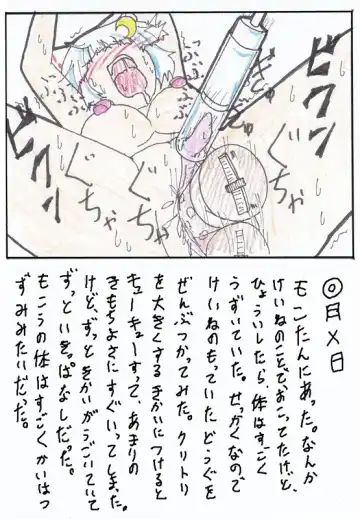 ◎月×日
モンたんにあった。なんか
けいねのことで、おこってたけど、
ひょういしたら、体はすごく
うずいていた。せっかくなので
けいねのもっていたどうぐを
ぜんぶつかってみた。クリトリ
を大きくするきかいにつけると
キューキューすって、あまりの
きもちよさにすぐいってしまった。
けど、ずっときかいがうごいていて
ずっといきっぱなしだった。
もこうの体はすごくかいはつ
ずみみたいだった。
ビクン
ビクン
ぐちゃ
ぐちゃ